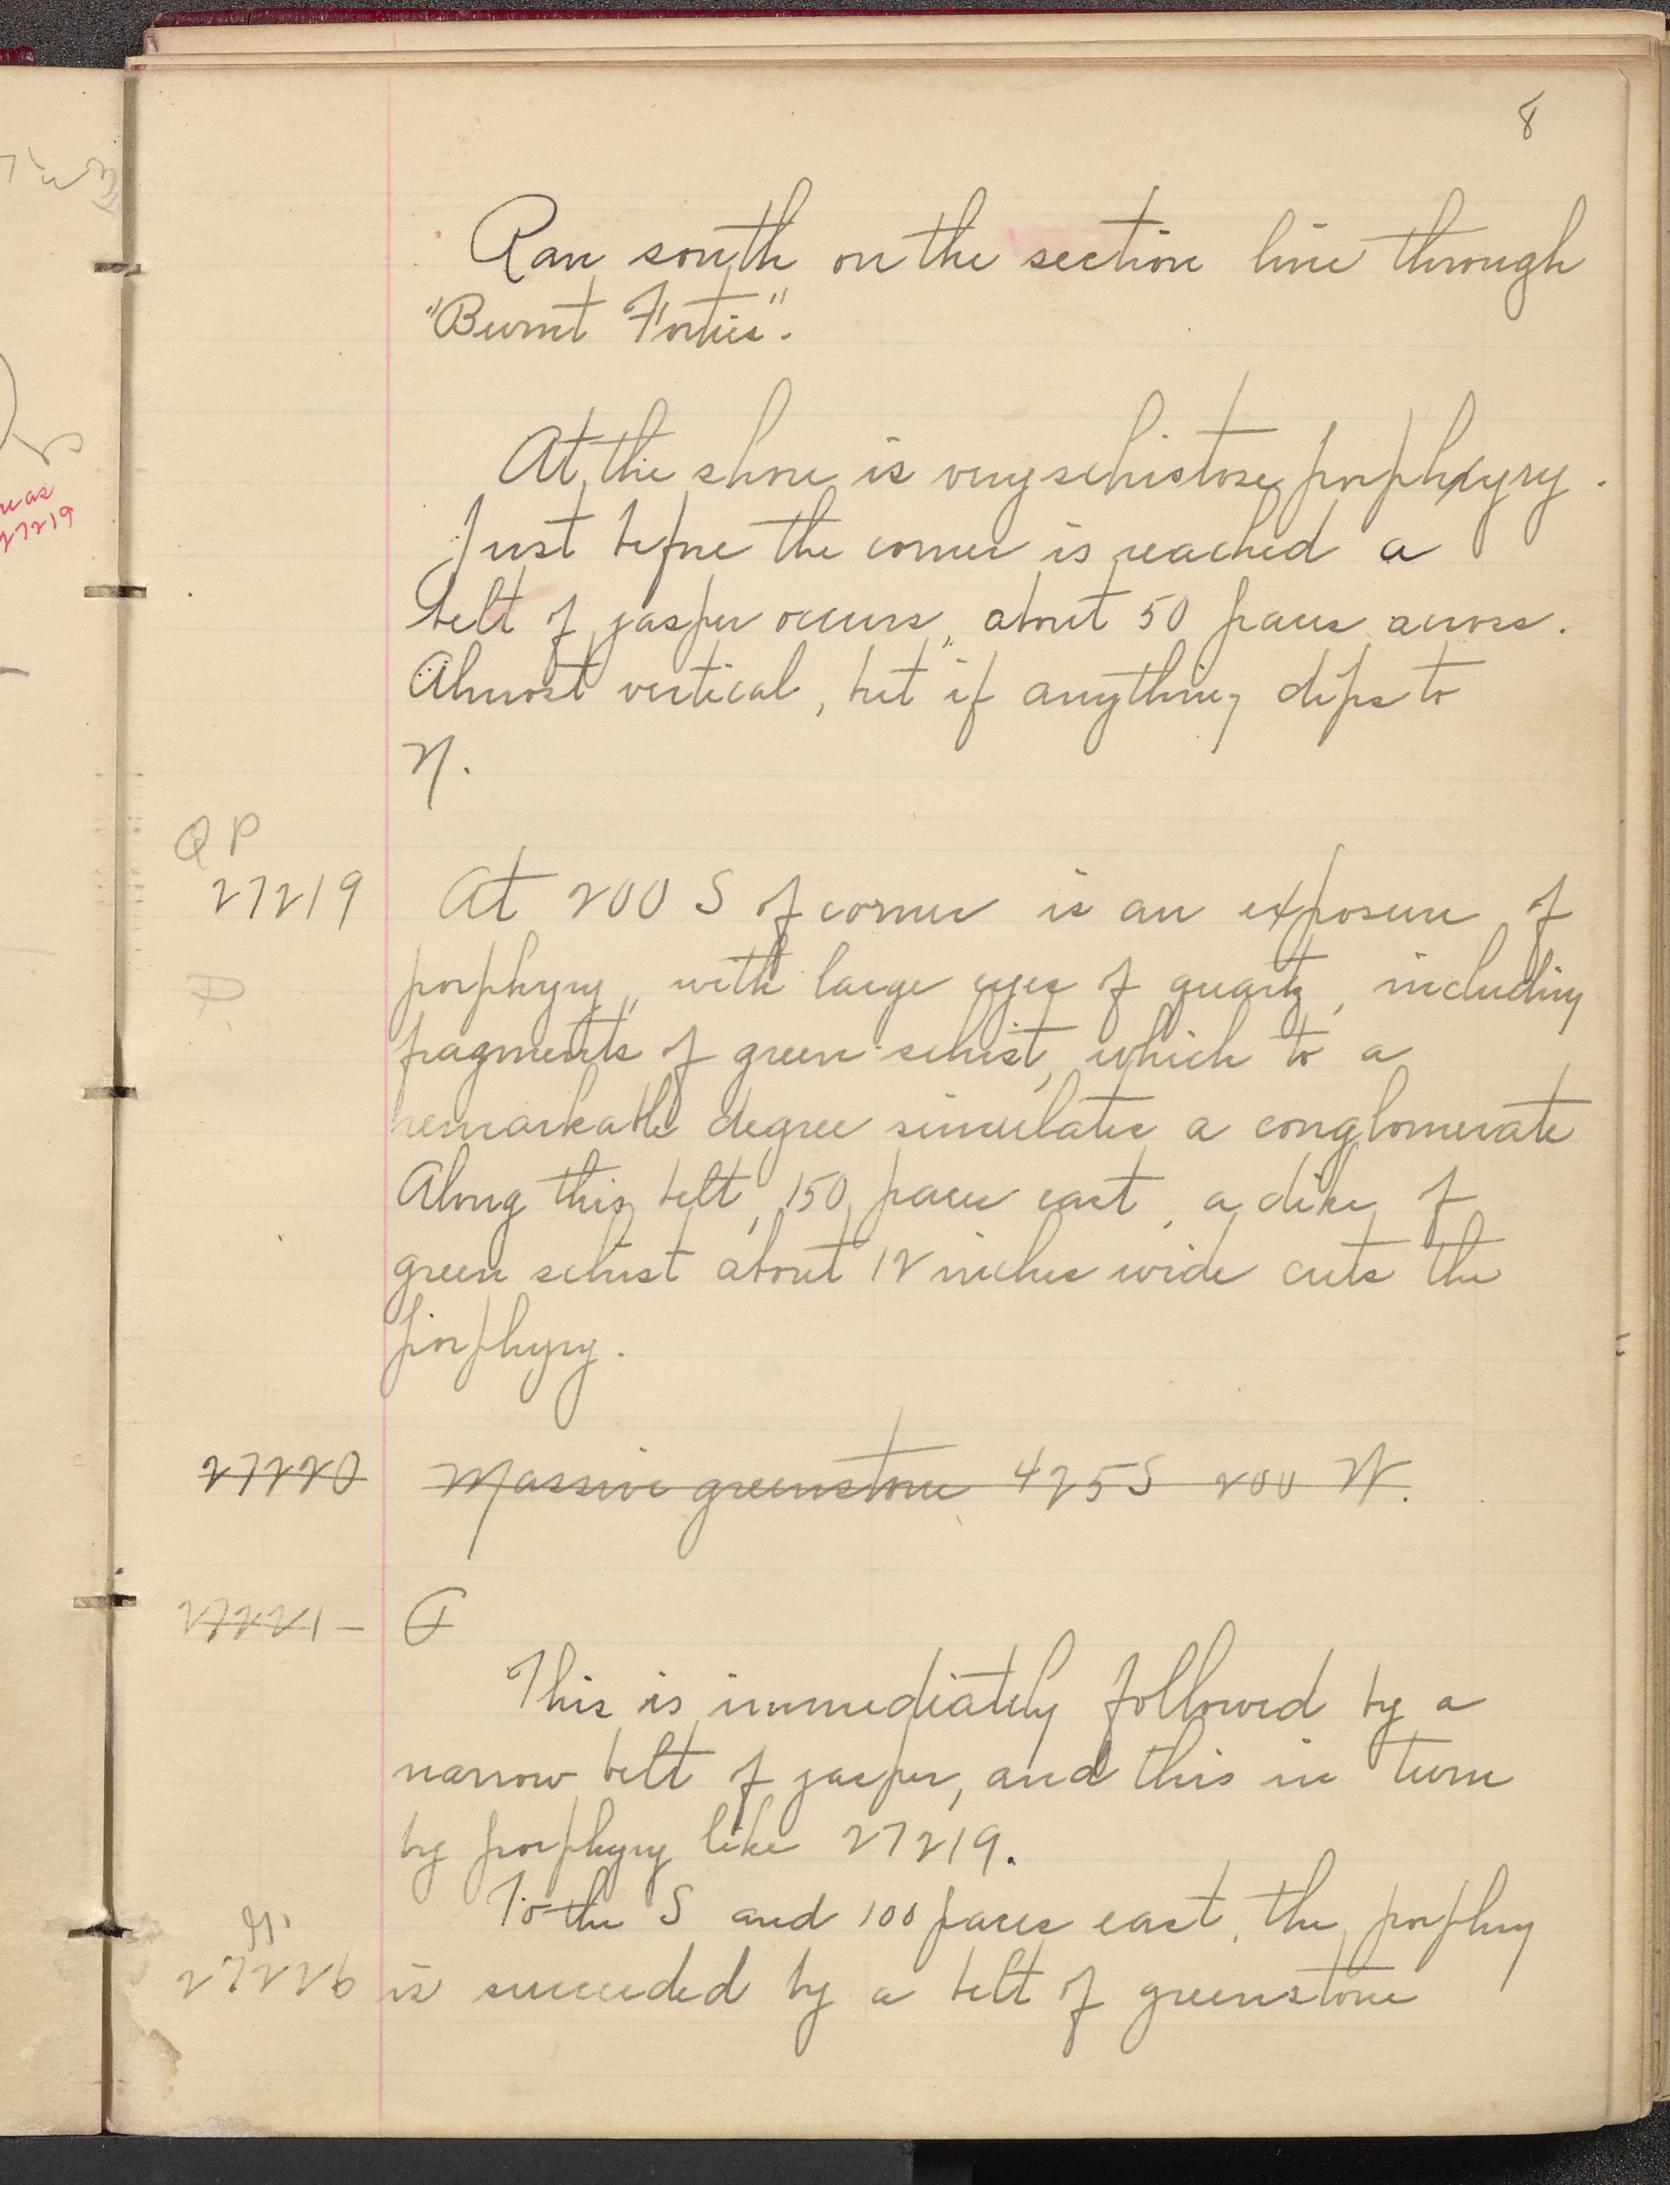 8
Ran south on the section line through
"Burnt Forties".
At the shore is very schistose porphyry.
Just before the corner is reached a
belt of jasper occurs, about 50 paces across.
Almost vertical, but if anything dips to
N.
QP
27219 At 200 S of corner is an exposure of
P
porphyry, with large eyes of quartz, including
fragments of green schist, which to a
remarkable degree simulates a conglomerate
Along this belt, 150 paces east, a dike of
green schist about 12 inches wide cuts the
porphyry.
27220 Massive greenstone 425 S 200 W.
27221 –
This is immediately followed by a
narrow belt of jasper, and this in turn
by porphyry like 27219.
To the S and 100 paces east, the porphry
27226 is succeeded by a belt of greenstone
27219